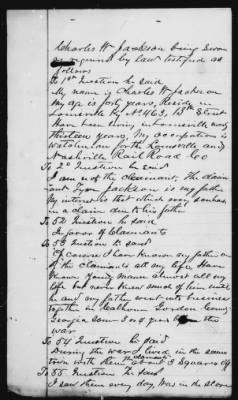 Charles W Jackson being sworn
as required by law testified as
follows
To 1st Question he said
My name is Charles W Jackson
My age is forty years, Reside in
Louisville Ky No 463, 15th Street
Have been living in Louisville nearly
thirteen years, My occupation is
Watchman for the Louisville and
Nashville Rail Road Co
To 2d Question he said
I am of the Claimant. The claim
ant Tyre Jackson is my father
My interest is that which every son has
in a claim due to his father
To 52 Question he said
In favor of Claimants
To 53 Question he said
Of course I have known my father one
of the claimants all my life, Have
known Young man almost all my
life but never knew much of him until
he and my father went into business
together in Calhoun Gordon County
Georgia some 3 or 4 years the
war
To 54 Question he said
During the war I lived in the same
town with them about 3 Squares off
To 55 Question he said
I saw them every day, was in the store